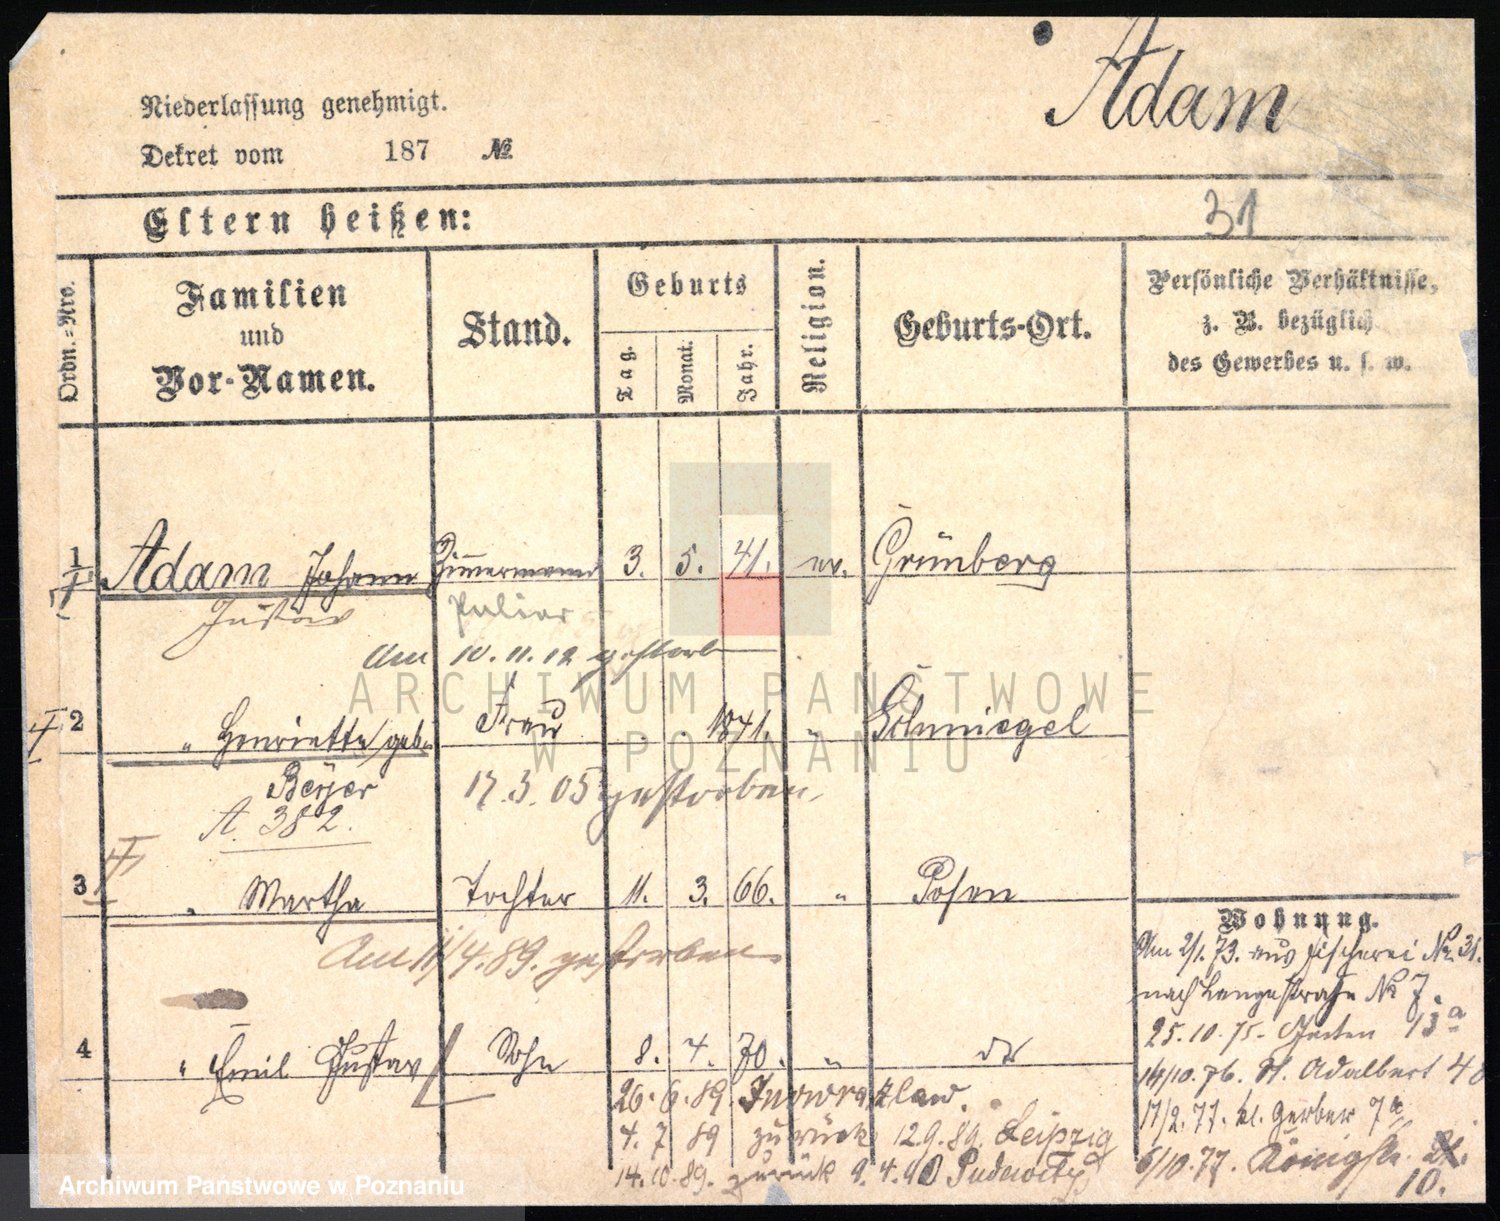 Adam
Niederlassung genehmigt.
Dekret vom 187 №
31
Eltern heißen:
Ordn.=Nro.
Familien und Vor-Namen.
Stand.
Geburts
Tag.
Monat.
Jahr.
Religion.
Geburts-Ort.
Persönliche Verhältnisse,
z. B. bezüglich
des Gewerbes u. s. w.
1 Adam Johann Zimmermann 3. 5. 41. ev. Grünberg
Gustav Polier
Am 10.11.12 gestorb
ARCHIWUM PAŃSTWOWE
W POZNANIU
2 " Henriette geb. Frau 1841. " Schmiegel
Beyer 17.3.05 gestorben,
A. 382.
3 " Martha Tochter 11. 3. 66. " Posen
Am 11/4.89. gestorben.
4 " Emil Gustav Sohn 8. 4. 70. " do
26.6.89 Inowrazlaw.
4.7 89 zurück 12.9.89. Leipzig
14.10.89. zurück 9.4.90 Pudewitz
Wohnung.
Am 2/1.73. aus Fischerei No. 31.
nach Langestraße No 7.
25.10.75. Garten 13a
14/10.76. St. Adalbert 40
17/2.77. kl. Gerber 7a
6/10.77. Königstr. 21.
10.
Archiwum Państwowe w Poznaniu